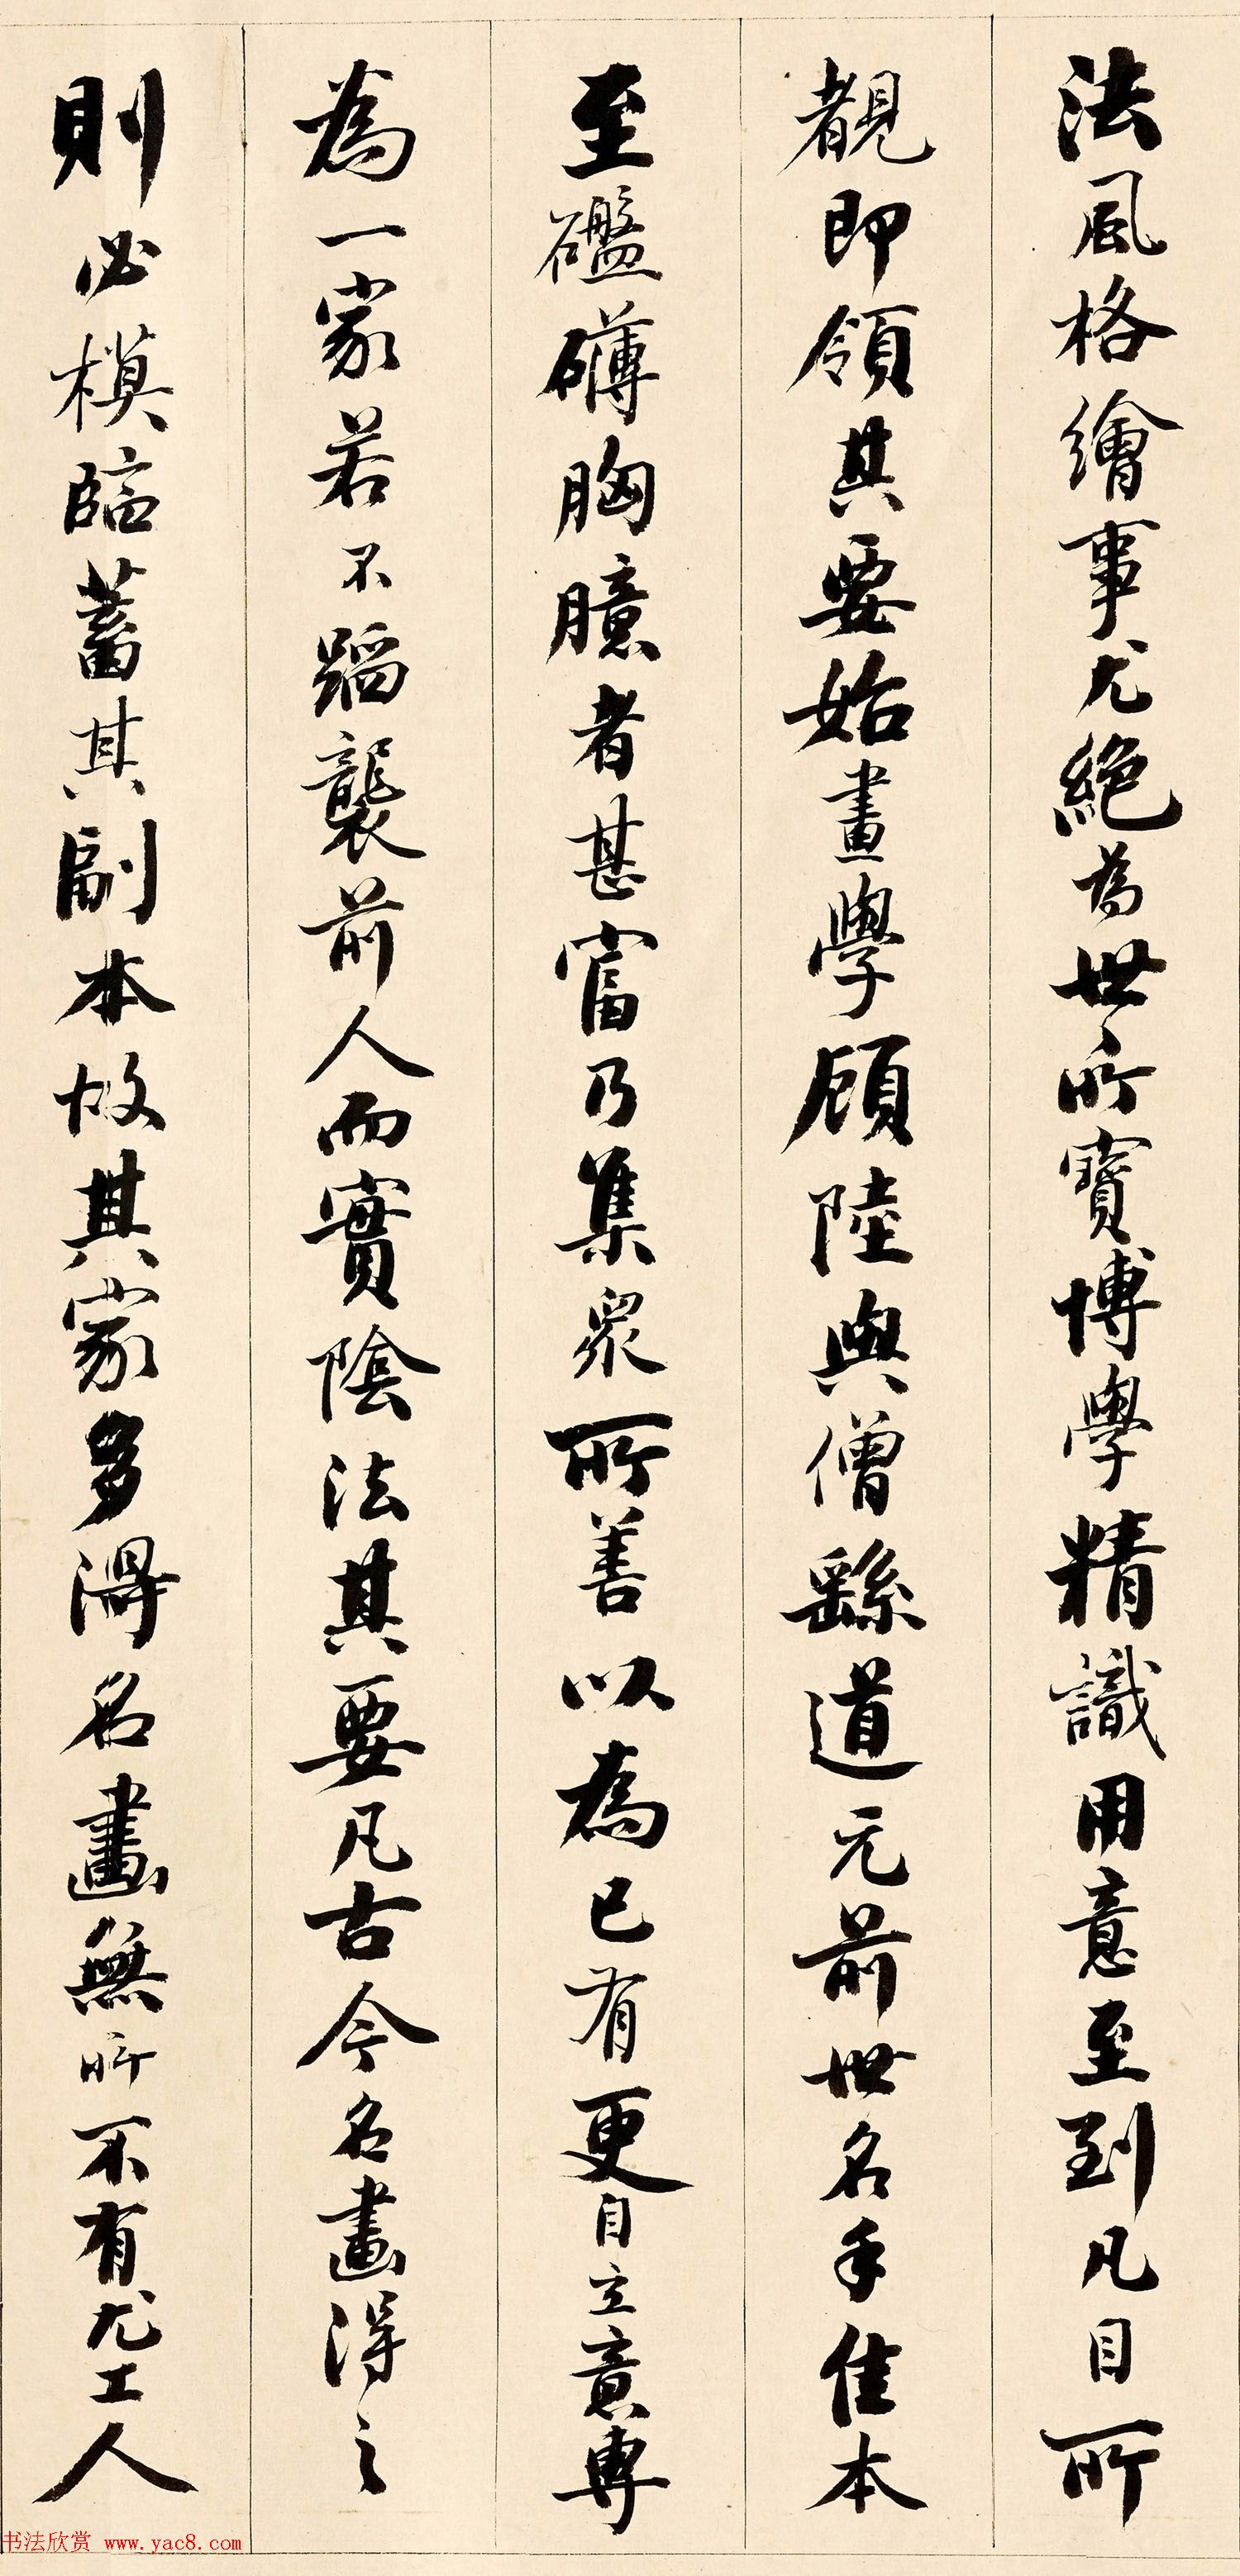 法風格繪事尤絕為世所寳博學精識用意至到凡目所
覩即領其要始畫學顧陸與僧繇道元前世名手佳本
至礛礴胸臆者甚富乃集眾所善以為己有更自立意專
為一家若不蹈襲前人而實陰法其要凡古今名畫得之
則必模臨蓄其副本故其家多得名畫無所不有尤工人
书法欣赏 www.yac8.com